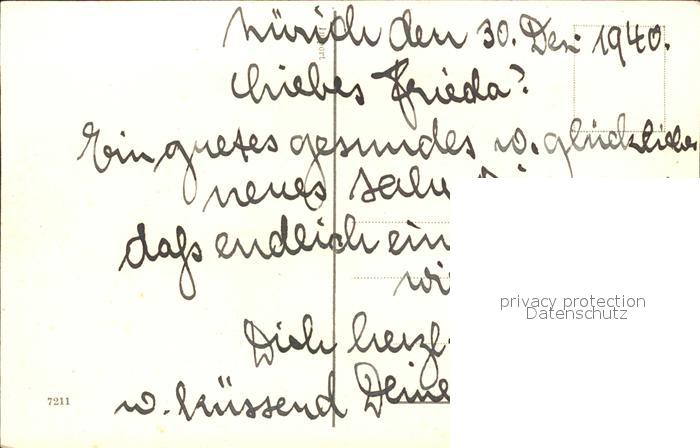 Zürich den 30. Dez 1940.
Liebes Frieda?
Ein gutes gesundes u. glückliches
neues
daß endlich ein
Dich herzl
u. küssend Deine
privacy protection
Datenschutz
7211